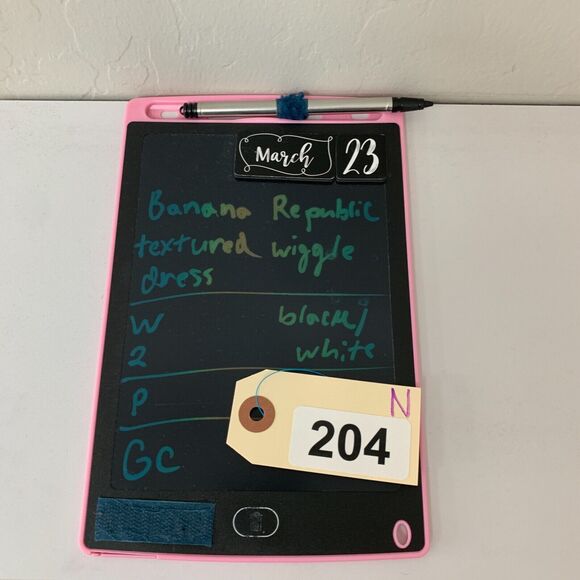 March 23
Banana Republic
textured wiggle
dress
W black/
2 white
P
GC
N
204